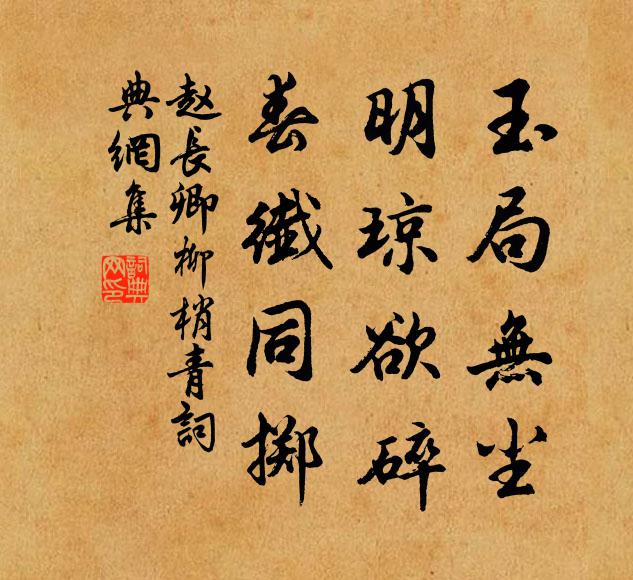 玉局無尘
明琼欲碎
春纖同掷
赵長卿柳梢青詞
典網集
詞典網印